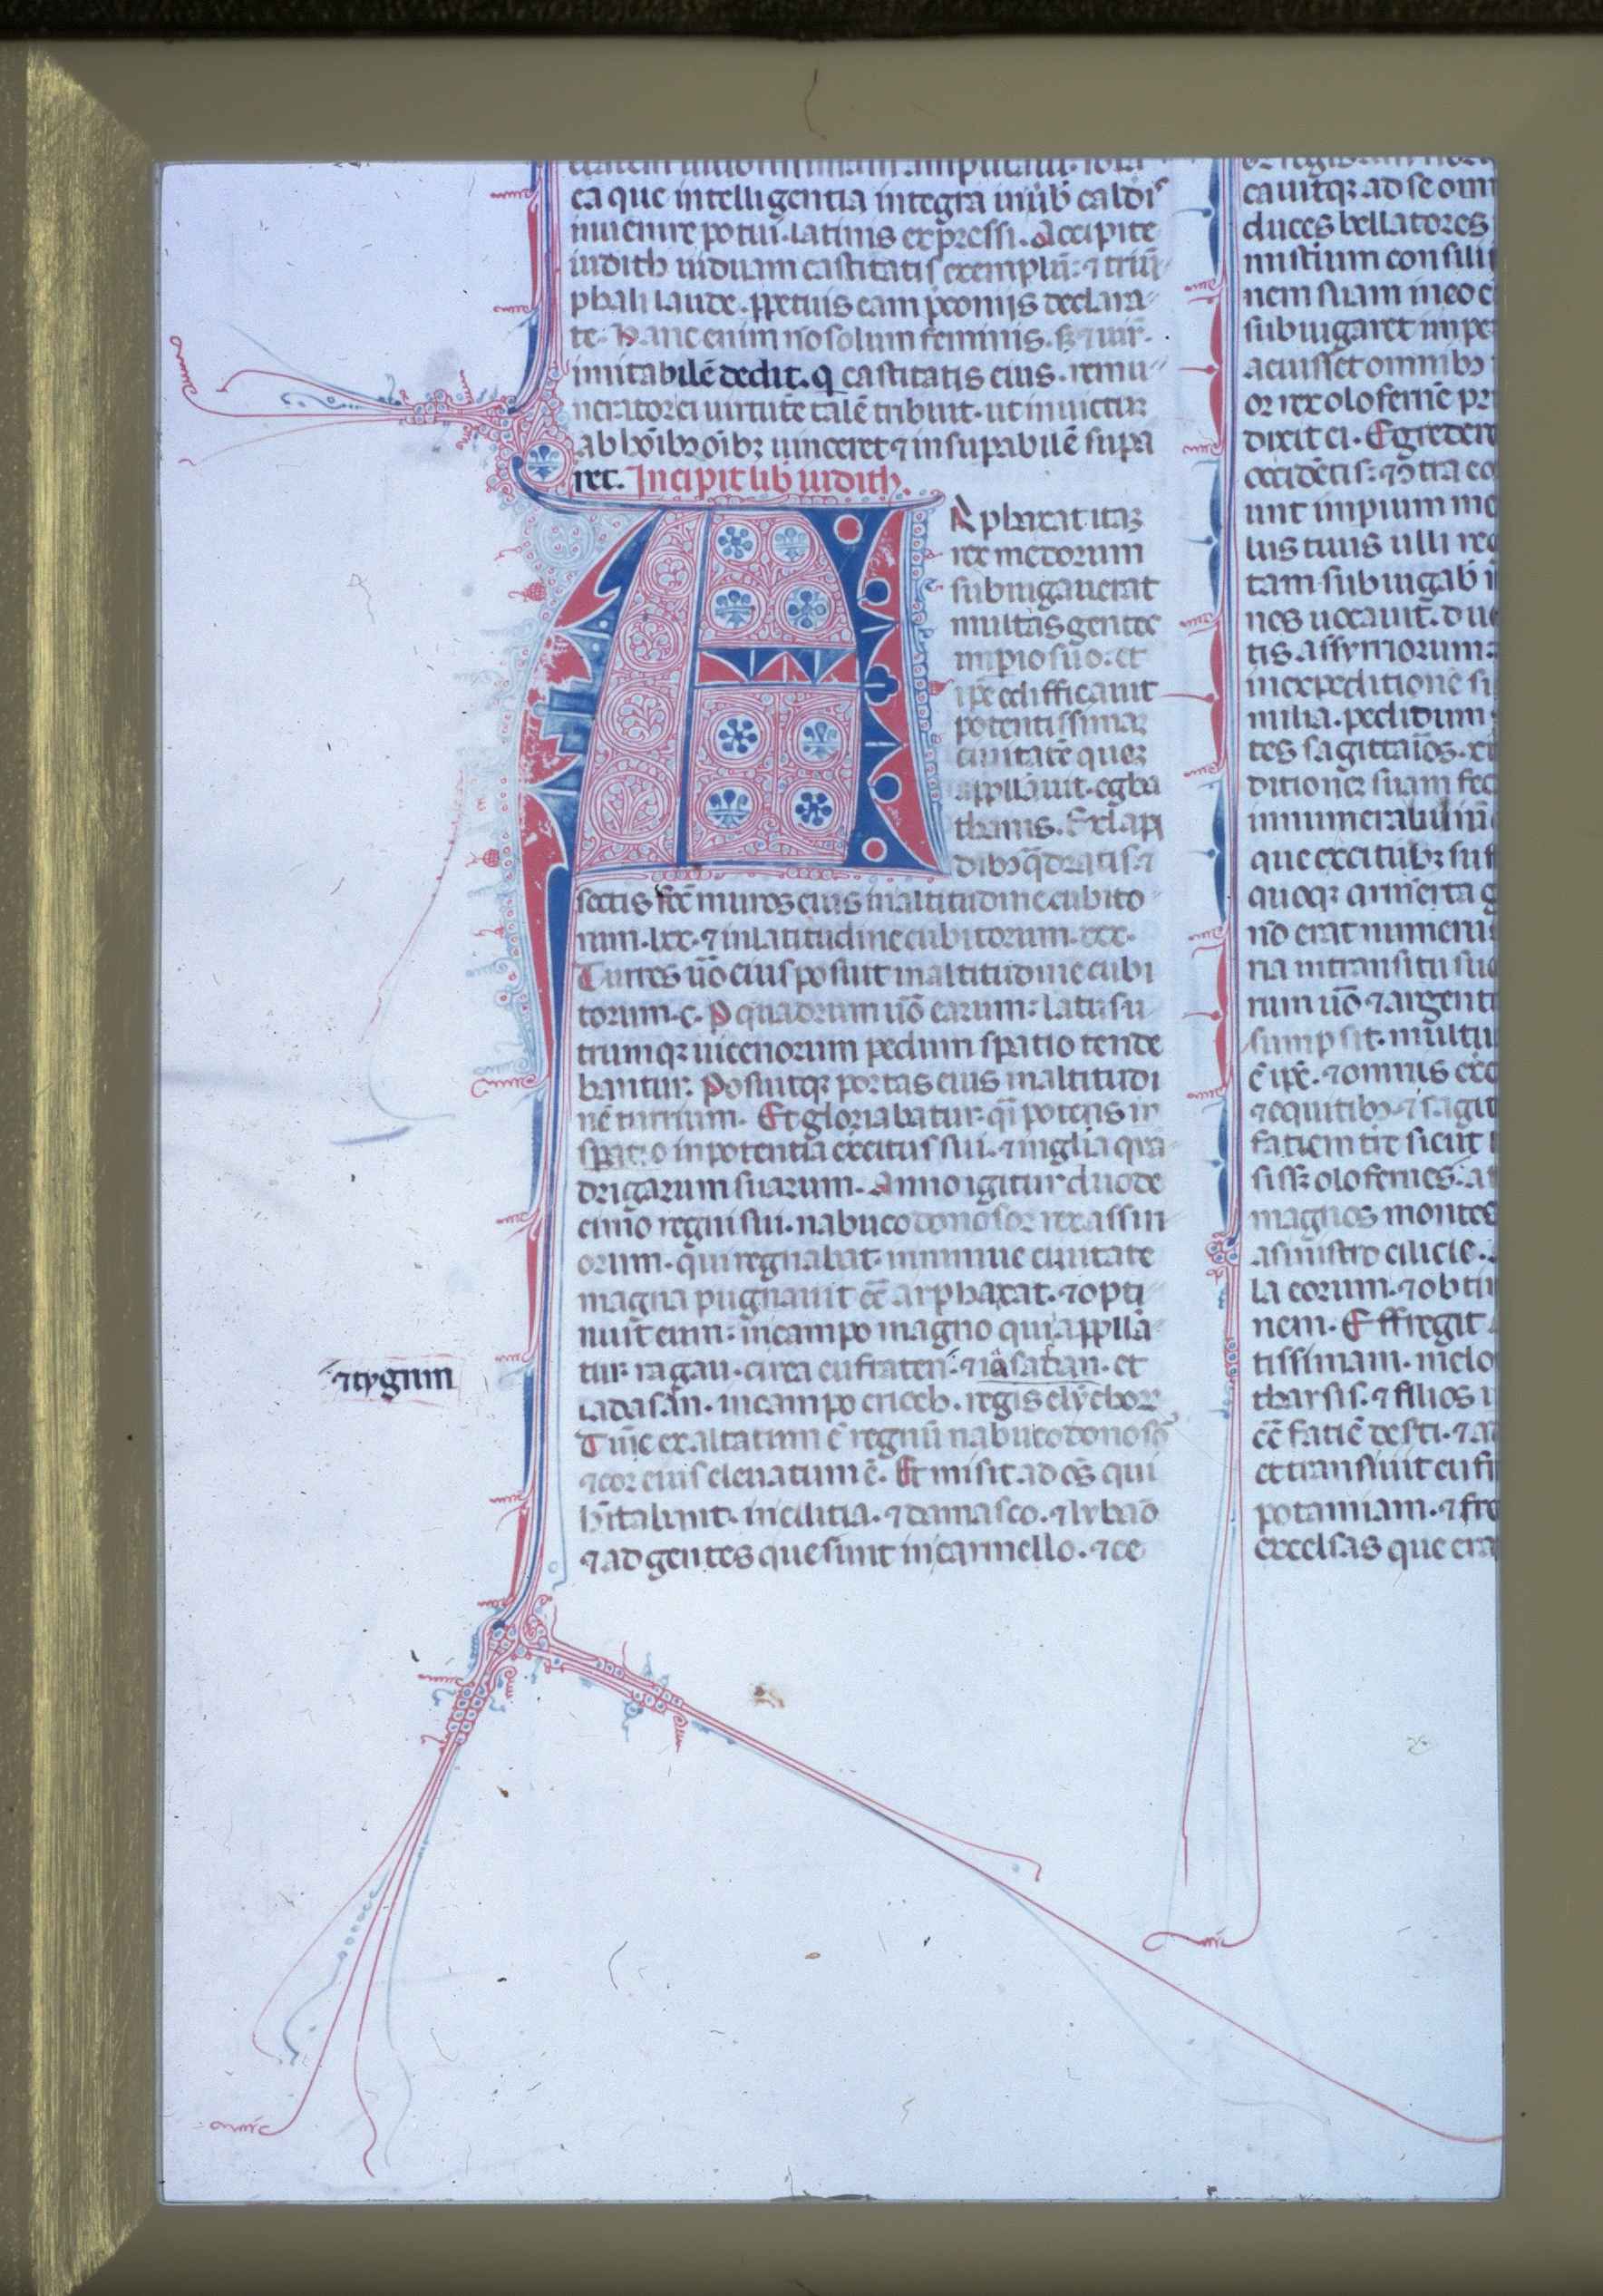 ea que intelligentia integra in ũbꝫ caldıˢ
inuenire potui. latinis expressi. Accipite
iudith uiduam castitatis exemplũ: ⁊ triũ-
phali laude. ꝑpetuis eam p̃conijs declara-
te. Hanc enim nõ solum feminis. sꝫ ⁊ uir̃.
imitabilẽ dedit. q castitatis eius. remu-
nerator ei uirtutẽ talẽ tribuit. ut inuictũ
ab hõibꝫ oĩbꝫ uinceret ⁊ insupabilẽ supa
ret. Incipit lib̃ iudith.
Arphaxat itaqꝫ
rex medorum
subiugauerat
multas gentes
impio suo. et
ipẽ edifficauit
potentissimaꝫ
ciuitatẽ queꝫ
appllauit. egba
thanis. Ex lapi
dibꝫ q̃dratis. ⁊
sectis fec̃ muros eius in altitudine cubito-
rum. lxx. ⁊ in latitudine cubitorum. xxx.
Turres ũo eius posuit in altitudine cubi
torum. c. P quadrum ũo earum: latus u-
trumqꝫ uicenorum pedum spatio tende
bantur. Posuitqꝫ portas eius in altitudi
nẽ turrium. Et gloriabatur: q̃i potens in
spatio in potentia ex̃citus sui. ⁊ in gl̃ia qua-
drigarum suarum. Anno igitur duode
cimo regni sui. nabucodonosor rex assiri
orum. qui regnabat. in niniue ciuitate
magna pugnauit cõ arphaxat. ⁊ opti-
nuit eum: in campo magno qui appllã-
tur. ragau. circa eufraten. ⁊ iasadan. et
iadasan. in campo erioch. regis elychor
Tũc exaltatum ẽ regnũ nabucodonosõ
⁊ cor eius eleuatum ẽ. Et misit ad oẽs qui
hĩtabant. in cilitia. ⁊ damasco. ⁊ lybaõ
⁊ ad gentes que sunt in carmello. ⁊ ce
⁊ tygrim
cauitqꝫ ad se om
duces bellatores
misterium consilii
nem suam in eo e
subiugaret impe
acuisset omnibꝫ
or rex olofernẽ pr
dixit ei. Egreder
occidẽtis: ⁊ cõtra eo
unt impium me
lus tuus ulli reg
tam subiugab i
nes uocauit. duc
tis. assyriorum:
in expeditionẽ si
milia. peditum
tes sagittaĩos. xi
ditioneꝫ suam fec
innumerabiliũ
que ex̃citibꝫ suf
quoqꝫ armẽta
nõ erat numerus
ria in transitu suo
rum ũo ⁊ argenti
sumpsit. multu
ẽ ipẽ. ⁊ omnis exe
⁊ equitibꝫ. ⁊ sagit
faciem tr̃e sicut l
sissꝫ olofernes. a
magnos montes
a sinistro cilicie.
la eorum. ⁊ obtin
nem. Effregit
tissimam. melo
tharsis. ⁊ filios
cõ faciẽ desti. ⁊ a
et transiuit eufr
potamiam. ⁊ fre
excelsas que era